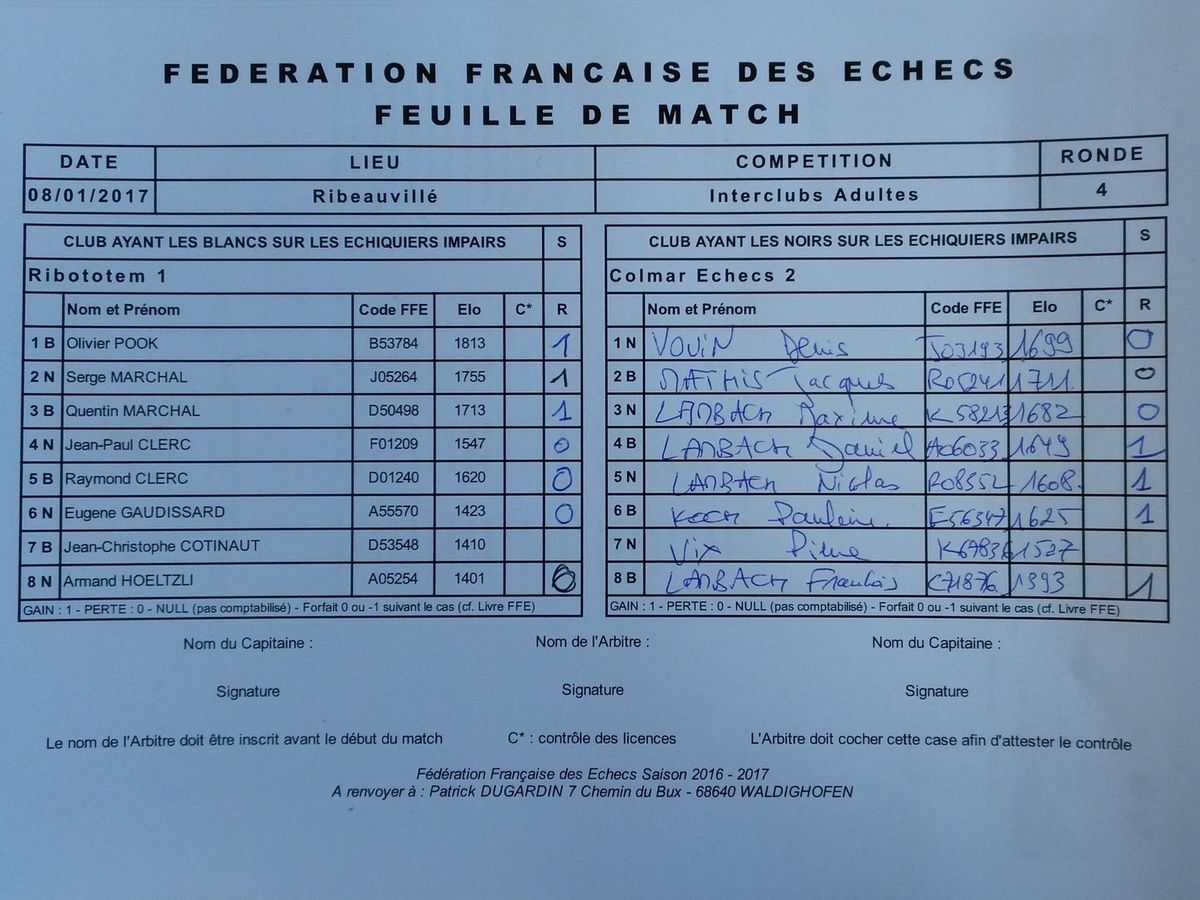 FEDERATION FRANCAISE DES ECHECS
FEUILLE DE MATCH
DATE LIEU COMPETITION RONDE
08/01/2017 Ribeauvillé Interclubs Adultes 4
CLUB AYANT LES BLANCS SUR LES ECHIQUIERS IMPAIRS S CLUB AYANT LES NOIRS SUR LES ECHIQUIERS IMPAIRS S
Ribototem 1 Colmar Echecs 2
Nom et Prénom Code FFE Elo C* R Nom et Prénom Code FFE Elo C* R
1 B Olivier POOK B53784 1813 1 1 N VOUIN Denis J03193 1699 0
2 N Serge MARCHAL J05264 1755 1 2 B MATHIS Jacques R05241 1711 0
3 B Quentin MARCHAL D50498 1713 1 3 N LAMBACH Maxime K58213 1682 0
4 N Jean-Paul CLERC F01209 1547 0 4 B LAMBACH Daniel A06033 1649 1
5 B Raymond CLERC D01240 1620 0 5 N LAMBACH Nicolas R08552 1608 1
6 N Eugene GAUDISSARD A55570 1423 0 6 B KOCH E56347 1625 1
7 B Jean-Christophe COTINAUT D53548 1410 7 N Vix 1527
8 N Armand HOELTZLI A05254 1401 0 8 B LAMBACH François C71876 1393 1
GAIN : 1 - PERTE : 0 - NULL (pas comptabilisé) - Forfait 0 ou -1 suivant le cas (cf. Livre FFE) GAIN : 1 - PERTE : 0 - NULL (pas comptabilisé) - Forfait 0 ou -1 suivant le cas (cf. Livre FFE)
Nom du Capitaine : Nom de l'Arbitre : Nom du Capitaine :
Signature Signature Signature
Le nom de l'Arbitre doit être inscrit avant le début du match C* : contrôle des licences L'Arbitre doit cocher cette case afin d'attester le contrôle
Fédération Française des Echecs Saison 2016 - 2017
A renvoyer à : Patrick DUGARDIN 7 Chemin du Bux - 68640 WALDIGHOFEN